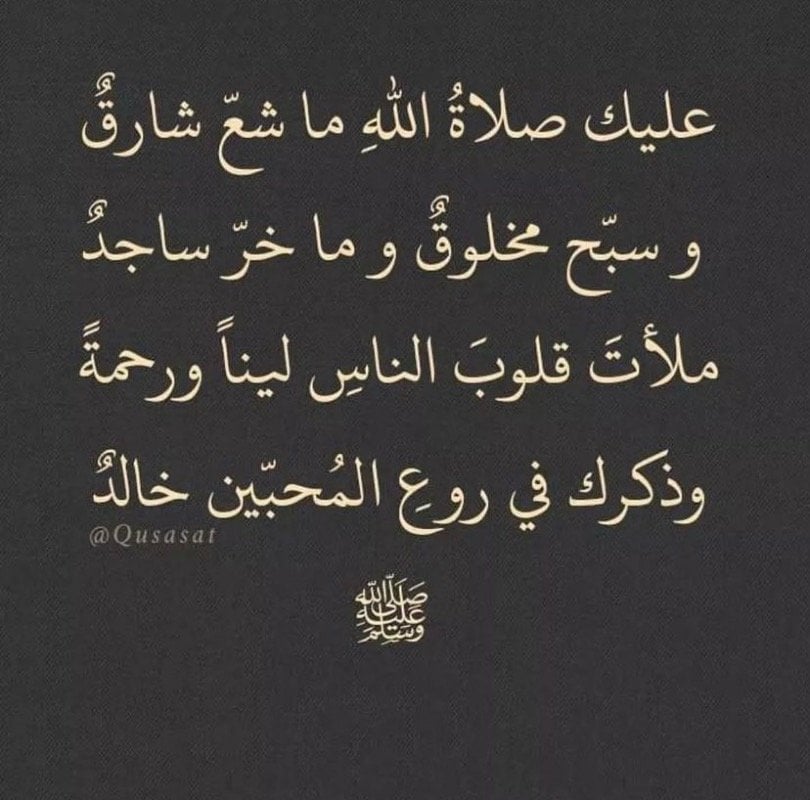 عليك صلاةُ اللهِ ما شعّ شارقٌ
و سبّح مخلوقٌ و ما خرّ ساجدٌ
ملأتَ قلوبَ الناسِ ليناً ورحمةً
وذكرك في روعِ المُحبّين خالدٌ
@Qusasat
ﷺ